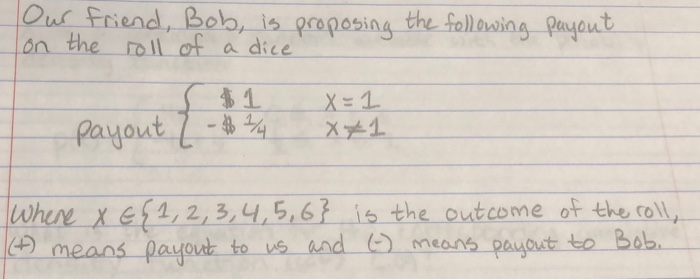 Our friend, Bob, is proposing the following payout
on the roll of a dice
payout { $1 x = 1
-$ 1/4 x ≠ 1
Where x ∈ {1, 2, 3, 4, 5, 6} is the outcome of the roll,
(+) means payout to us and (-) means payout to Bob.